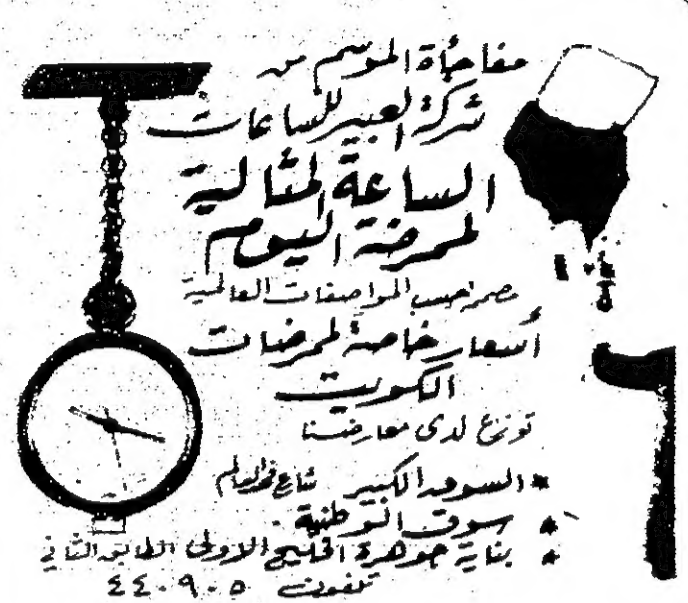 مفاجأة الموسم من
شركة العبير للساعات
الساعة المثالية
لممرضة اليوم
حسب المواصفات العالمية
أسعار خاصة لممرضات
الكويت
توزع لدى معارضنا
* السوق الكبير شارع
* سوق الوطنية
* بناية جوهرة الخليج الاولى الطابق الثاني
تلفون ٤٤٠٩٠٥